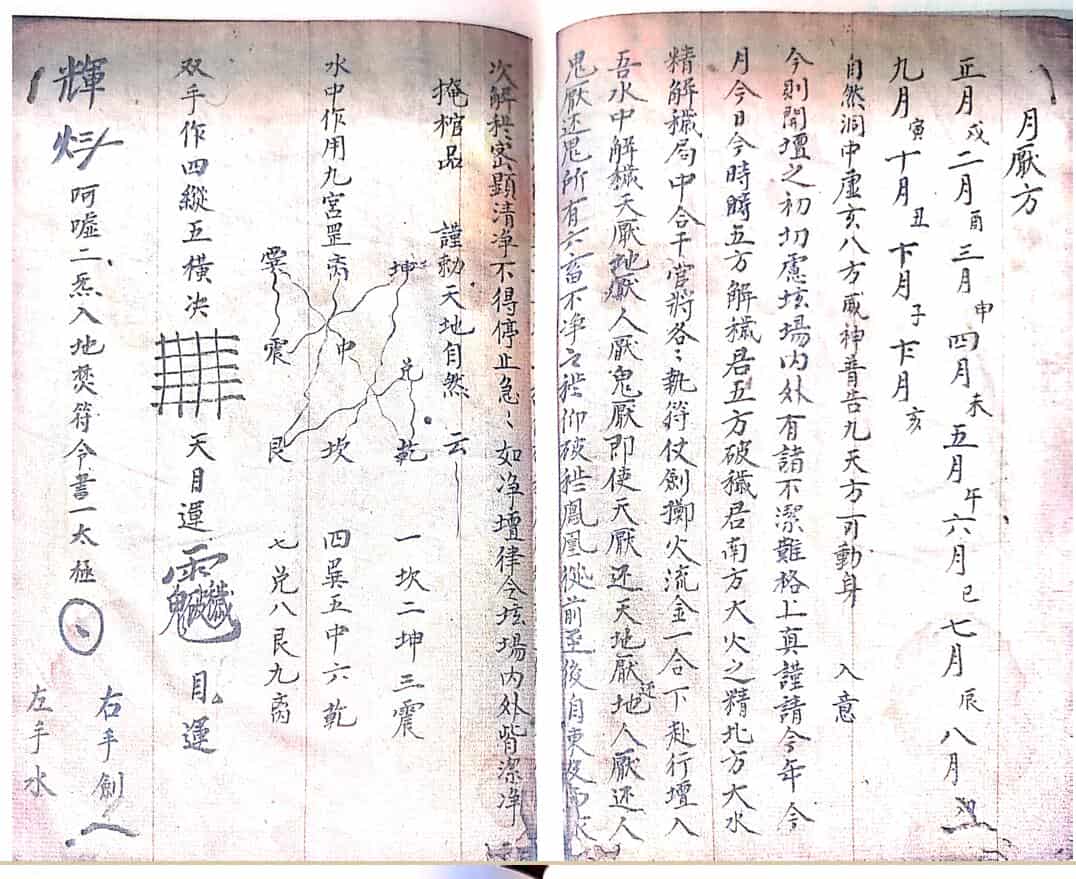 月厭方
正月戌二月酉三月申四月未五月午六月巳七月辰八月
九月寅十月丑十一月子十二月亥
自然洞中虛玄八方威神普告九天方可動身 入意
今則開壇之初切慮垓場内外有諸不潔難格上真謹請今年今
月今日今時五方解穢君五方破穢君南方大火之精北方大水
精解穢局中合干官將各〻執符仗劍擲火流金一合下赴行壇入
吾水中解穢天厭地厭人厭鬼厭即使天厭还天地厭还地人厭还人
鬼厭还鬼所有六畜不净之秽仰破秽鳳凰從前至後自東
次解秽密顯清净不得停止急〻如净壇律令垓場内外皆潔净
掩棺品 謹勅天地自然 云
水中作用九宫罡
离 坤 巽 中 震 兑 艮 坎 乾
一坎二坤三震
四巽五中六乾
七兑八艮九离
双手作四縱五横决 天目運 目運
輝 呵嘘二炁入地焚符令書一太極
右手劍
左手水